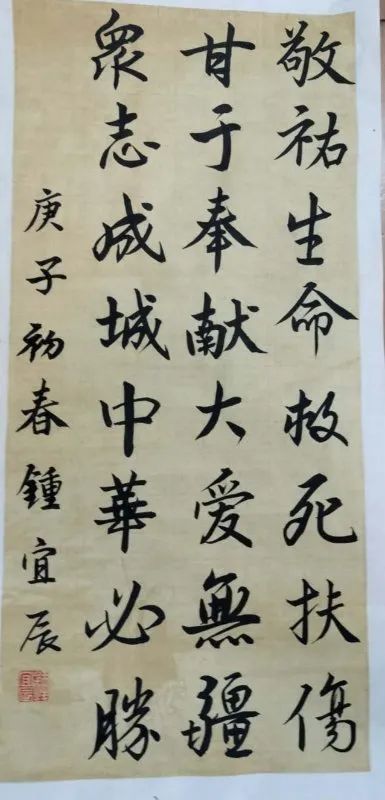 敬祐生命救死扶傷
甘于奉献大爱無疆
眾志成城中華必勝
庚子初春鍾宜辰